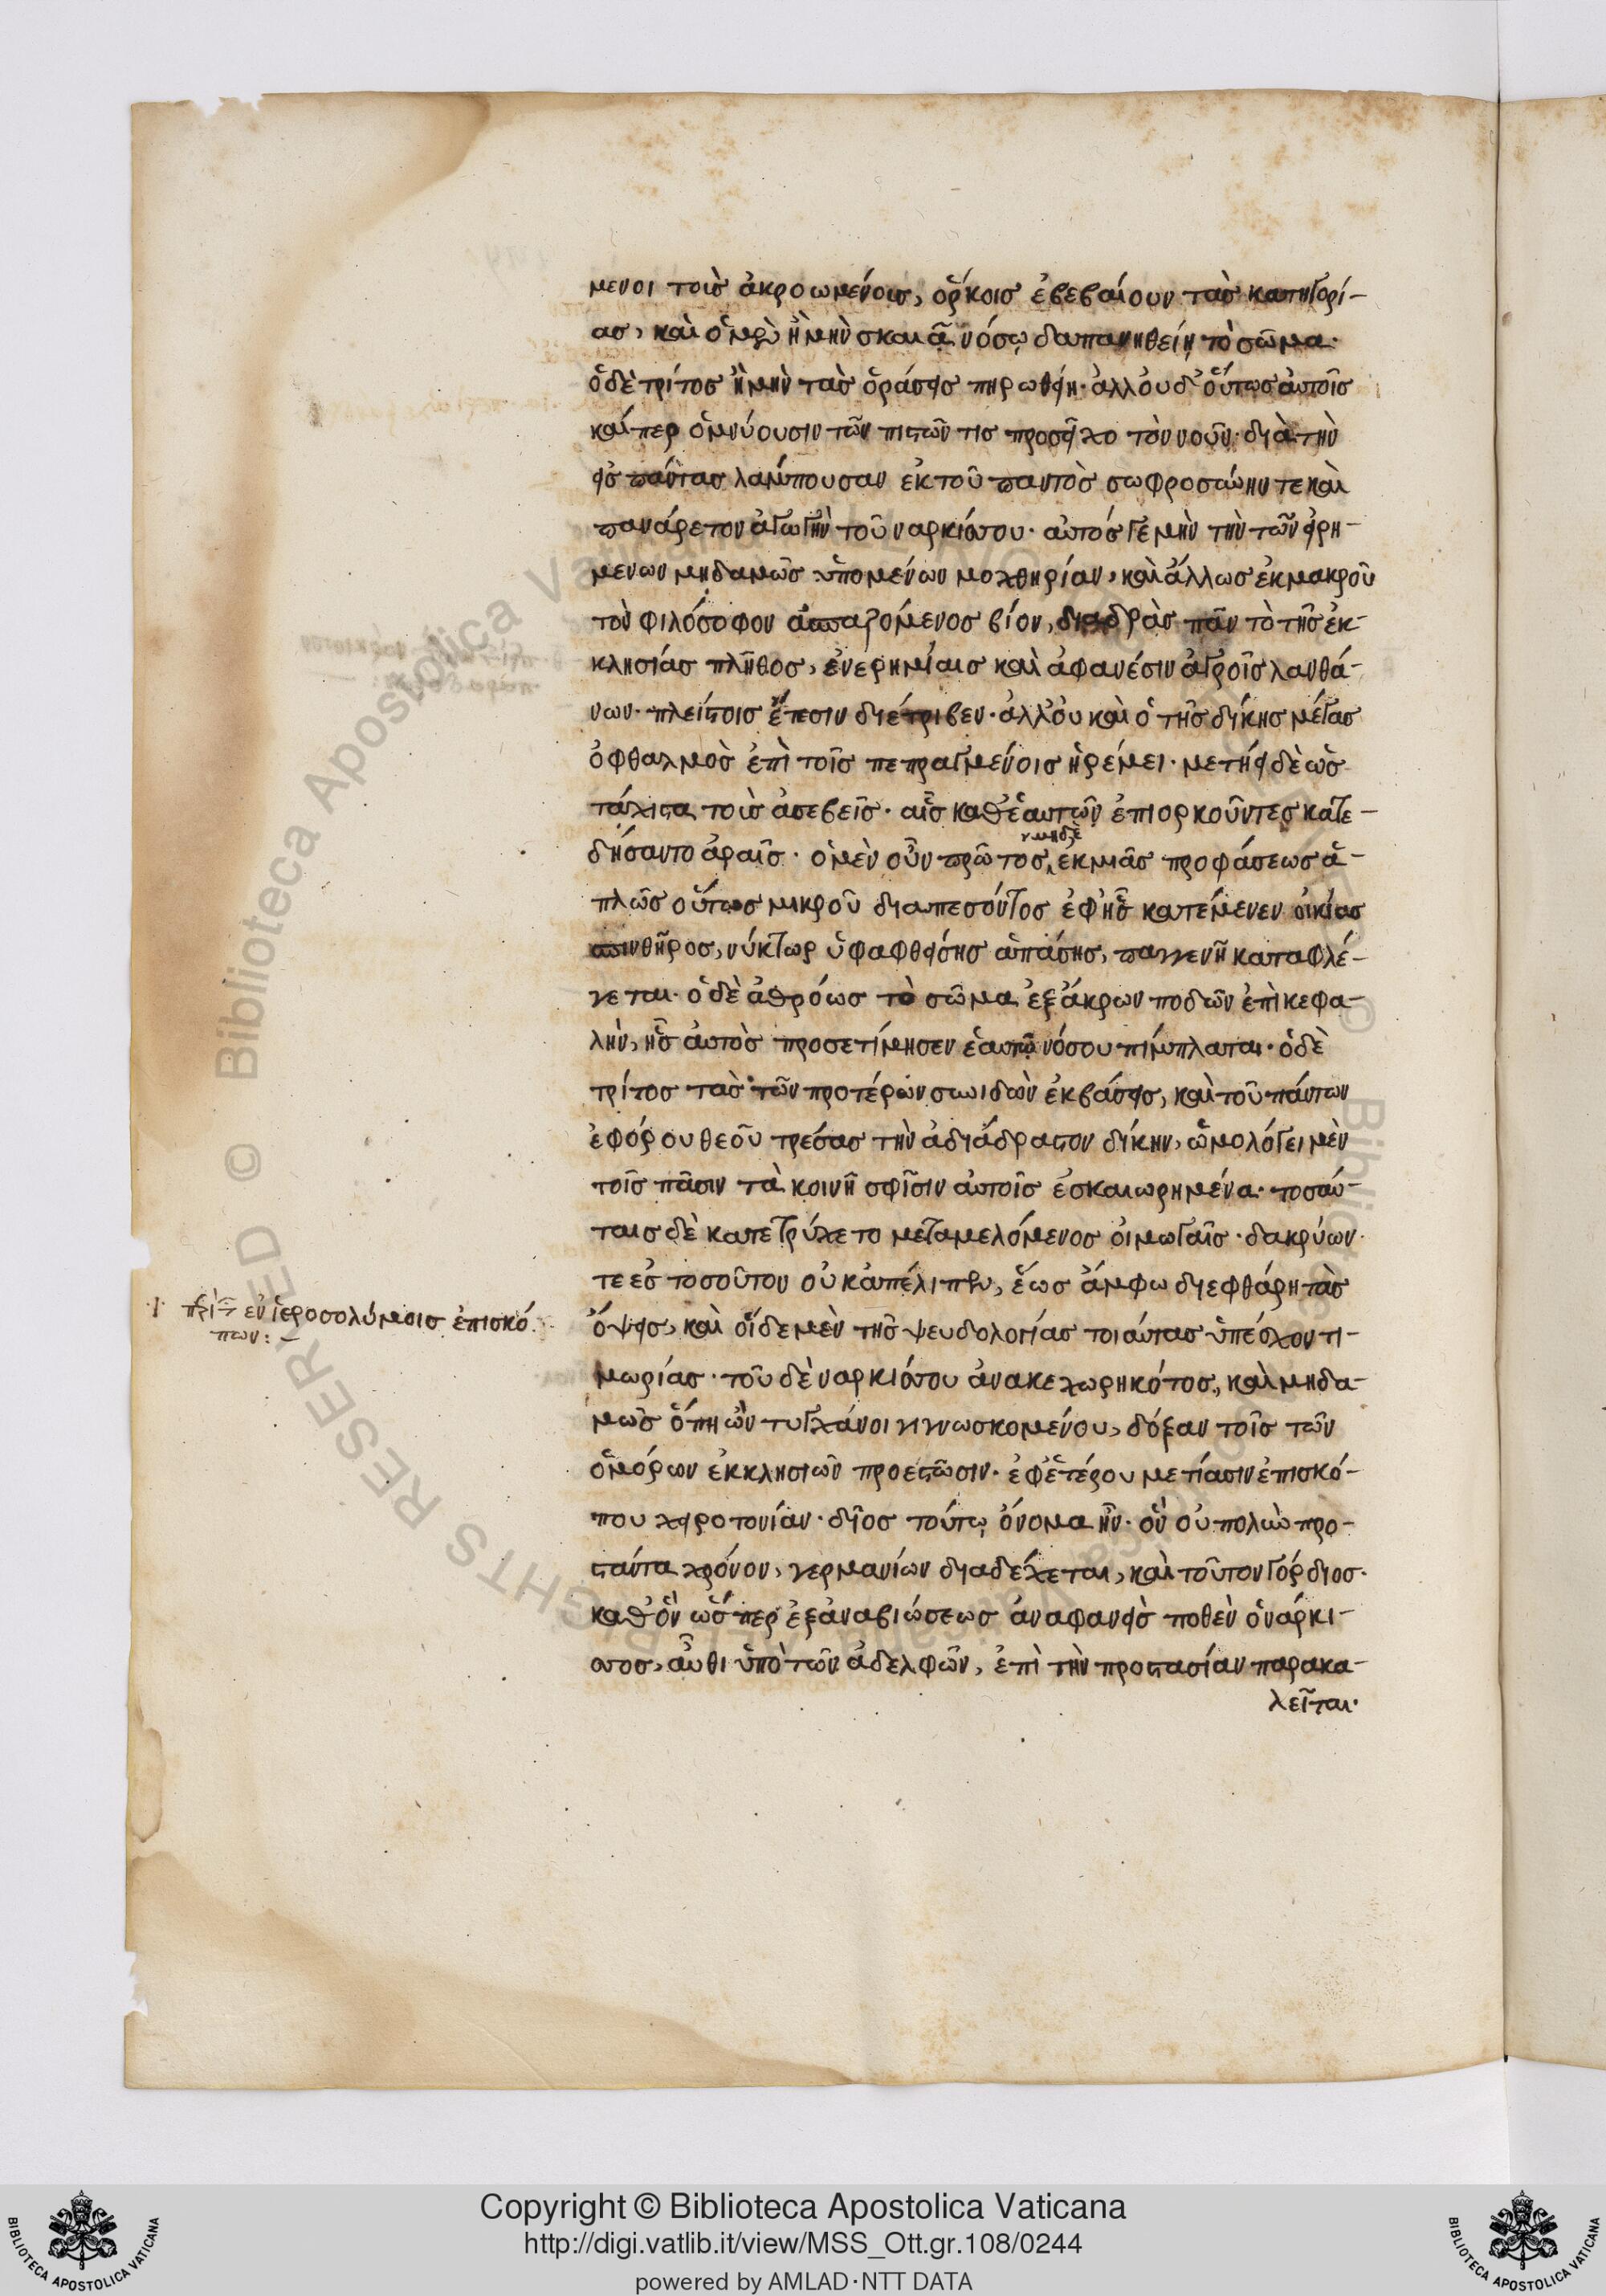 μενοι τοὺς ἀκροωμένους, ὅρκοις ἐβεβαίουν τὰς κατηγορί-
ας, καὶ ὁ μὲν ἢ μὴν σκαιᾷ νόσῳ δαπανηθείη τὸ σῶμα·
ὁ δὲ τρίτος ἢ μὴν τὰς ὁράσεις πηρωθείη· ἀλλ' οὐδ' οὕτως αὐτοῖς
καίπερ ὀμνύουσιν τῶν πιστῶν τις προσεῖχε τὸν νοῦν· διὰ τὴν
εἰς πάντας λάμπουσαν ἐκ τοῦ παντὸς σωφροσύνην τε καὶ
πανάρετον ἀγωγὴν τοῦ ναρκίσσου· αὐτός γε μὴν τὴν τῶν εἰρη-
μένων μηδαμῶς ὑπομένων μοχθηρίαν, καὶ ἄλλως ἐκ μακροῦ
τὸν φιλόσοφον ἀσπαζόμενος βίον, διαδρὰς πᾶν τὸ τῆς ἐκ-
κλησίας πλῆθος, ἐν ἐρημίαις καὶ ἀφανέσιν ἀγροῖς λανθά-
νων· πλείστοις ἔτεσιν διέτριβεν· ἀλλ' οὐ καὶ ὁ τῆς δίκης μέγας
ὀφθαλμὸς ἐπὶ τοῖς πεπραγμένοις ἠρέμει· μετῄει δὲ ὡς
τάχιστα τοὺς ἀσεβεῖς· αἷς καθ' ἑαυτῶν ἐπιορκοῦντες κατε-
δήσαντο ἀραῖς· ὁ μὲν οὖν πρῶτος, μηδὲ ἐκ μιᾶς προφάσεως ἁ-
πλῶς οὕτως μικροῦ διαπεσόντος ἐφ' ἧς κατέμενεν οἰκίας
σπινθῆρος, νύκτωρ ὑφαφθείσης ἁπάσης, παγγενῆ καταφλέ-
γεται· ὁ δὲ ἀθρόως τὸ σῶμα ἐξ ἄκρων ποδῶν ἐπὶ κεφα-
λήν, ἧς αὐτὸς προσετίμησεν ἑαυτῷ νόσου πίμπλαται· ὁ δὲ
τρίτος τὰς τῶν προτέρων συνιδὼν ἐκβάσεις, καὶ τοῦ πάντων
ἐφόρου θεοῦ τρέσας τὴν ἀδιάδραστον δίκην, ὡμολόγει μὲν
τοῖς πᾶσιν τὰ κοινῇ σφίσιν αὐτοῖς ἐσκαιωρημένα· τοσαύ-
ταις δὲ κατετρύχετο μεταμελόμενος οἰμωγαῖς· δακρύων
τε ἐς τοσοῦτον οὐκ ἀπέλιπεν, ἕως ἄμφω διεφθάρη τὰς
·Ι· περὶ τῶν ἐν ἱεροσολύμοις ἐπισκό
πων: –
ὄψεις, καὶ οἵδε μὲν τῆς ψευδολογίας τοιαύτας ὑπέσχον τι-
μωρίας· τοῦ δὲ ναρκίσσου ἀνακεχωρηκότος, καὶ μηδα-
μῶς ὅπη ὢν τυγχάνοι γιγνωσκομένου, δόξαν τοῖς τῶν
ὁμόρων ἐκκλησιῶν προεστῶσιν· ἐφ' ἑτέρου μετίασιν ἐπισκό-
που χειροτονίαν· δῖος τούτῳ ὄνομα ἦν· ὃν οὐ πολὺν προ-
στάντα χρόνον, γερμανίων διαδέχεται, καὶ τοῦτον γόρδιος·
καθ' ὃν ὥσπερ ἐξ ἀναβιώσεως ἀναφανεὶς ποθὲν ὁ νάρκι-
σσος, αὖθι ὑπὸ τῶν ἀδελφῶν, ἐπὶ τὴν προστασίαν παρακα-
λεῖται·
Copyright © Biblioteca Apostolica Vaticana
http://digi.vatlib.it/view/MSS_Ott.gr.108/0244
powered by AMLAD·NTT DATA